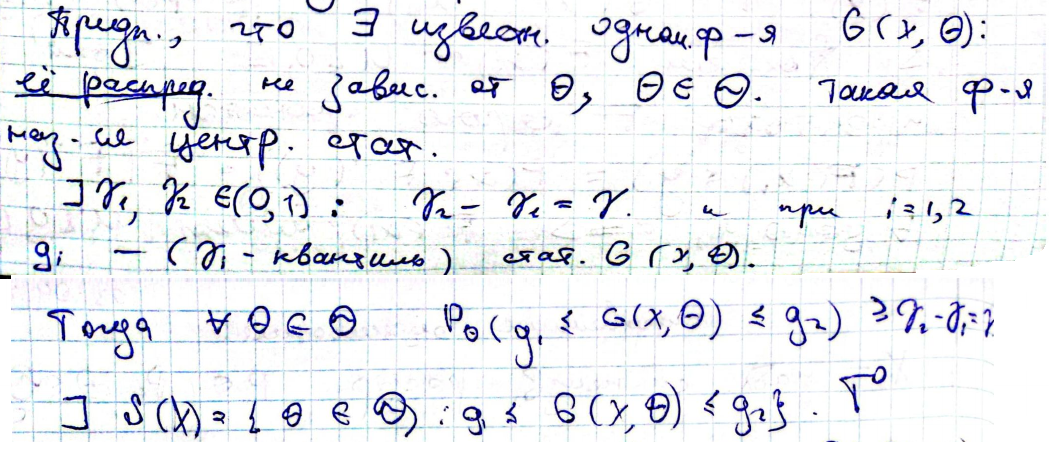 Предп., что ∃ известн. одном. ф-я G(x, Θ):
её распред. не завис. от Θ, Θ ∈ Θ. Такая ф-я
наз-ся центр. стат.
] γ₁, γ₂ ∈ (0,1) : γ₂ - γ₁ = γ. и при i = 1, 2
gᵢ — (γᵢ - квантиль) стат. G (x, Θ).
Тогда ∀ Θ ∈ Θ P_Θ(g₁ ≤ G(X, Θ) ≤ g₂) ≥ γ₂ - γ₁ = γ
] S(X) = { Θ ∈ Θ : g₁ ≤ G(X, Θ) ≤ g₂}.